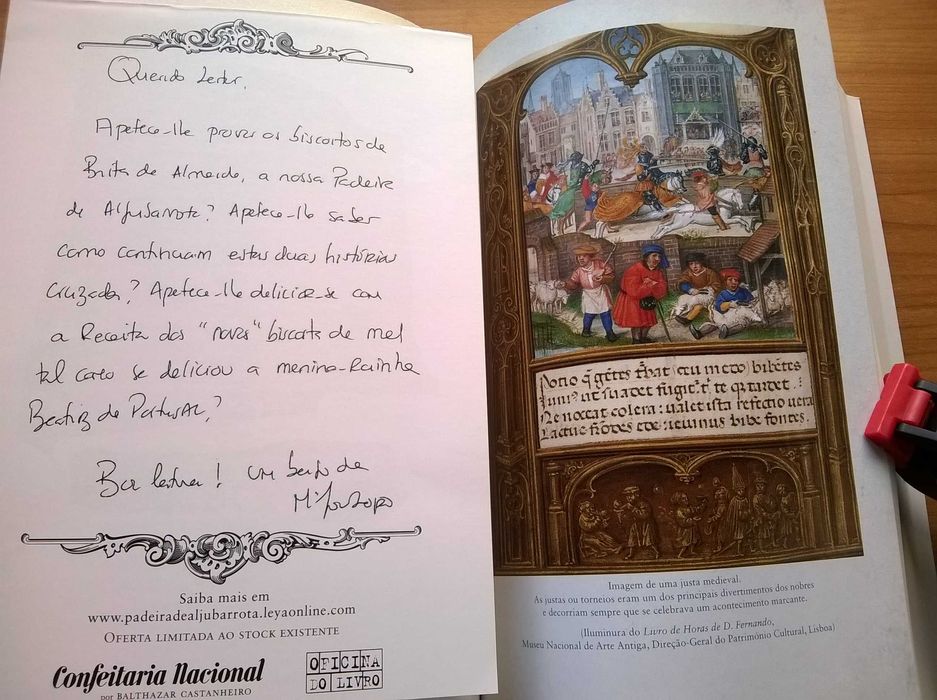 Querido Leitor,
Apetece-lhe provar os biscoitos de
Brites de Almeida, a nossa Padeira
de Aljubarrota? Apetece-lhe saber
como continuam estas duas histórias
cruzadas? Apetece-lhe deliciar-se com
a Receita dos "novos" biscoitos de mel
tal como se deliciou a menina-Rainha
Beatriz de Portugal?
Boa leitura! Um beijo da
Saiba mais em
www.padeiradealjubarrota.leyaonline.com
OFERTA LIMITADA AO STOCK EXISTENTE
Confeitaria Nacional
por BALTHAZAR CASTANHEIRO
OFICINA
DO LIVRO
ut suadet fugit
Ne noceat colera: valet ista refectio vera
vinus bibe fontes.
Imagem de uma justa medieval.
As justas ou torneios eram um dos principais divertimentos dos nobres
e decorriam sempre que se celebrava um acontecimento marcante.
(Iluminura do Livro de Horas de D. Fernando,
Museu Nacional de Arte Antiga, Direção-Geral do Património Cultural, Lisboa)